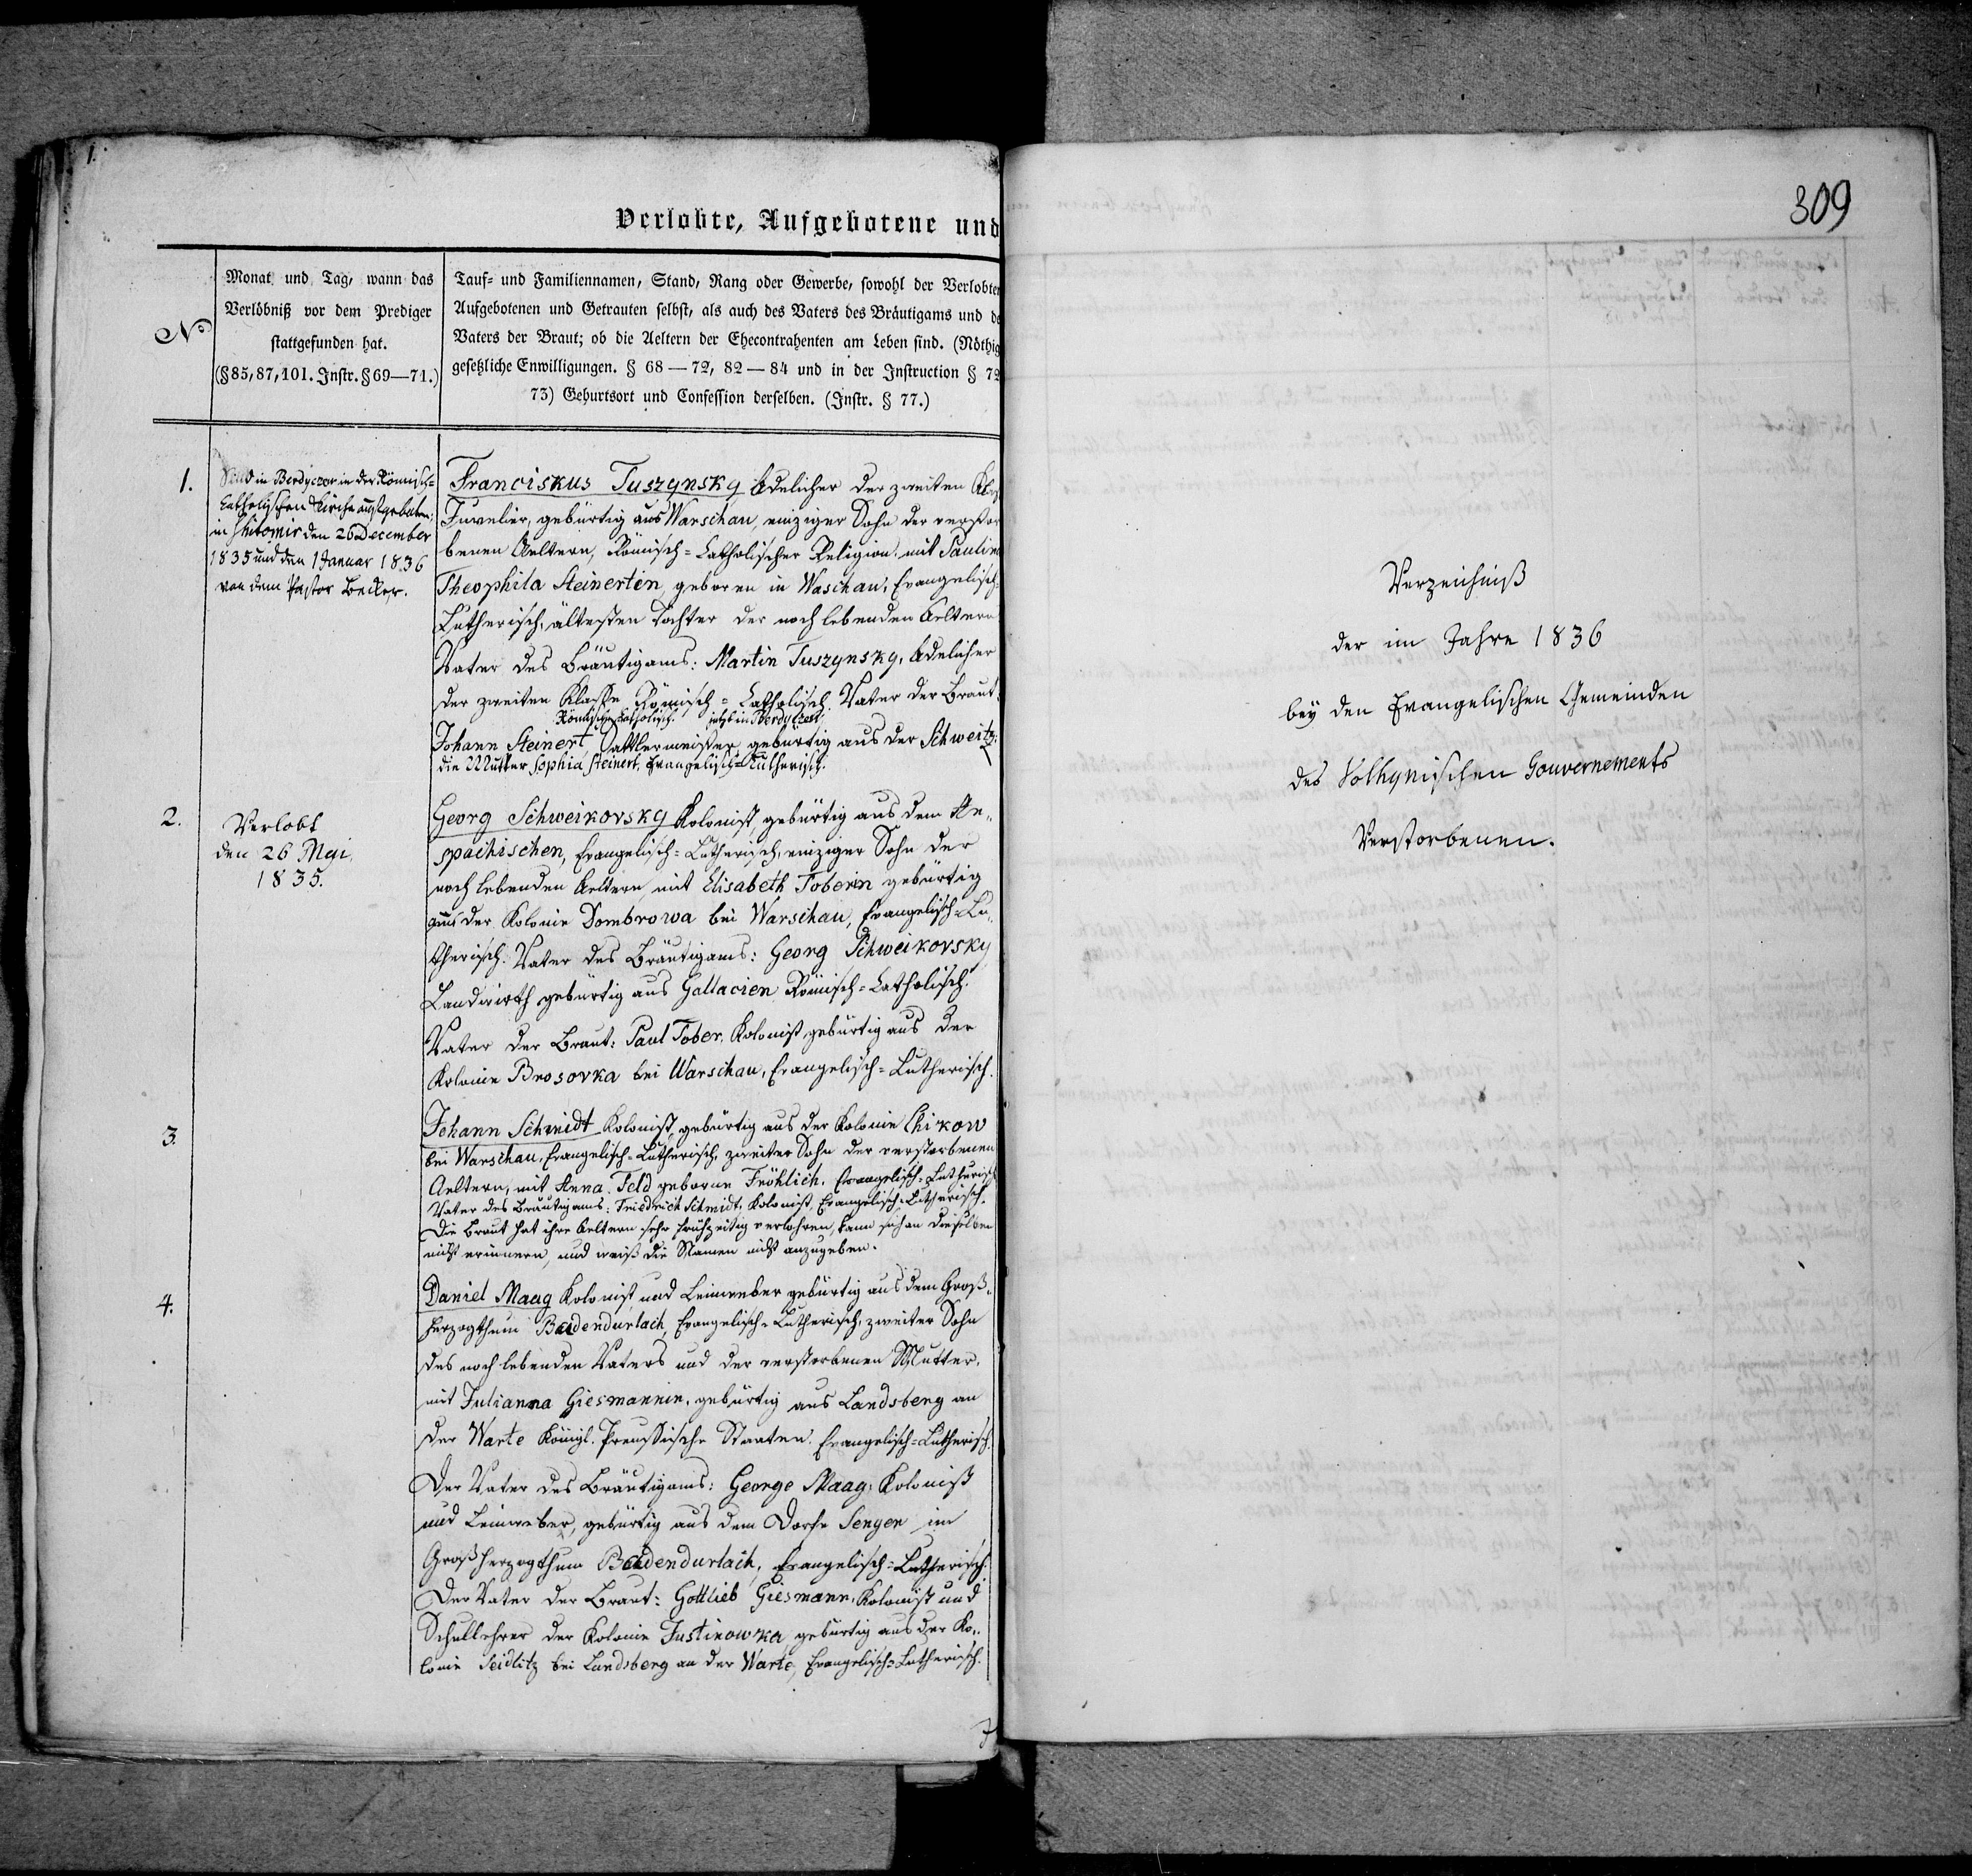 1.
Verlobte, Aufgebotene und
No
Monat und Tag, wann das
Verlöbniß vor dem Prediger
stattgefunden hat.
(§ 85, 87, 101. Instr. § 69—71.)
Tauf- und Familiennamen, Stand, Rang oder Gewerbe, sowohl der Verlobten
Aufgebotenen und Getrauten selbst, als auch des Vaters des Bräutigams und de
Vaters der Braut; ob die Aeltern der Ehecontrahenten am Leben sind. (Nöthig
gesetzliche Enwilligungen. § 68—72, 82—84 und in der Instruction § 72
73) Geburtsort und Confession derselben. (Instr. § 77.)
1.
Sind in Berdyczew in der Römisch=
Catholischen Kirche aufgeboten;
in Shitomir den 26 December
1835 und den 1 Januar 1836
von dem Pastor Becker.
Franciskus Tuszynsky Adelicher der zweiten Klas
Juvelier, gebürtig aus Warschau, einziger Sohn der verstor
benen Aeltern, Römisch=Catholischer Religion, mit Paulina
Theophila Steinertin, geboren in Waschau, Evangelisch=
Lutherisch, ältesten Tochter der noch lebenden Aeltern
Vater des Bräutigams: Martin Tuszynsky, Adelicher
der zweiten Klasse Römisch=Catholisch. Vater der Braut:
Römisch=Catholisch. jetzt in Berdyczew
Johann Steinert, Sattlermeister gebürtig aus der Schweitz;
die Mutter Sophia Steinert, Evangelisch=Lutherisch.
2.
Verlobt
den 26 Mai
1835.
Georg Schweikovsky Kolonist, gebürtig aus dem An„
spachischen, Evangelisch=Lutherisch, einziger Sohn der
noch lebenden Aeltern mit Elisabeth Toberin gebürtig
aus der Kolonie Dombrowa bei Warschau, Evangelisch=Lu„
therisch. Vater des Bräutigams: Georg Schweikovsky
Landwirth gebürtig aus Gallacien, Römisch=Catholisch.
Vater der Braut: Paul Tober, Kolonist gebürtig aus der
Kolonie Brosovka bei Warschau, Evangelisch=Lutherisch.
3.
Johann Schmidt Kolonist, gebürtig aus der Kolonie Chikow
bei Warschau, Evangelisch=Lutherisch, zweiter Sohn der verstorbenen
Aeltern, mit Anna Feld geborne Fröhlich, Evangelisch=Lutherisch
Vater des Bräutigams: Friedrich Schmidt, Kolonist, Evangelisch=Lutherisch.
Die Braut hat ihre Aeltern sehr frühzeitig verlohren, kann sich an dieselben
nicht erinnern, und weiß die Namen nicht anzugeben.
4.
Daniel Maag Kolonist und Leinweber gebürtig aus dem Groß„
herzogthum Badendurlach, Evangelisch=Lutherisch, zweiter Sohn
des noch lebenden Vaters und der verstorbenen Mutter,
mit Julianna Giesmannin, gebürtig aus Landsberg an
der Warte Königl. Preussische Staaten, Evangelisch=Lutherisch.
Der Vater des Bräutigams: George Maag, Kolonist
und Leinweber, gebürtig aus dem Dorfe Sengen im
Großherzogthum Badendurlach, Evangelisch=Lutherisch.
Der Vater der Braut: Gottlieb Giesmann, Kolonist und
Schullehrer der Kolonie Justinowka, gebürtig aus der Ko„
lonie Seidlitz bei Landsberg an der Warte, Evangelisch=Lutherisch.
309
Verzeichniß
der im Jahre 1836
bey den Evangelischen Gemeinden
des Volhynischen Gouvernements
Verstorbenen.